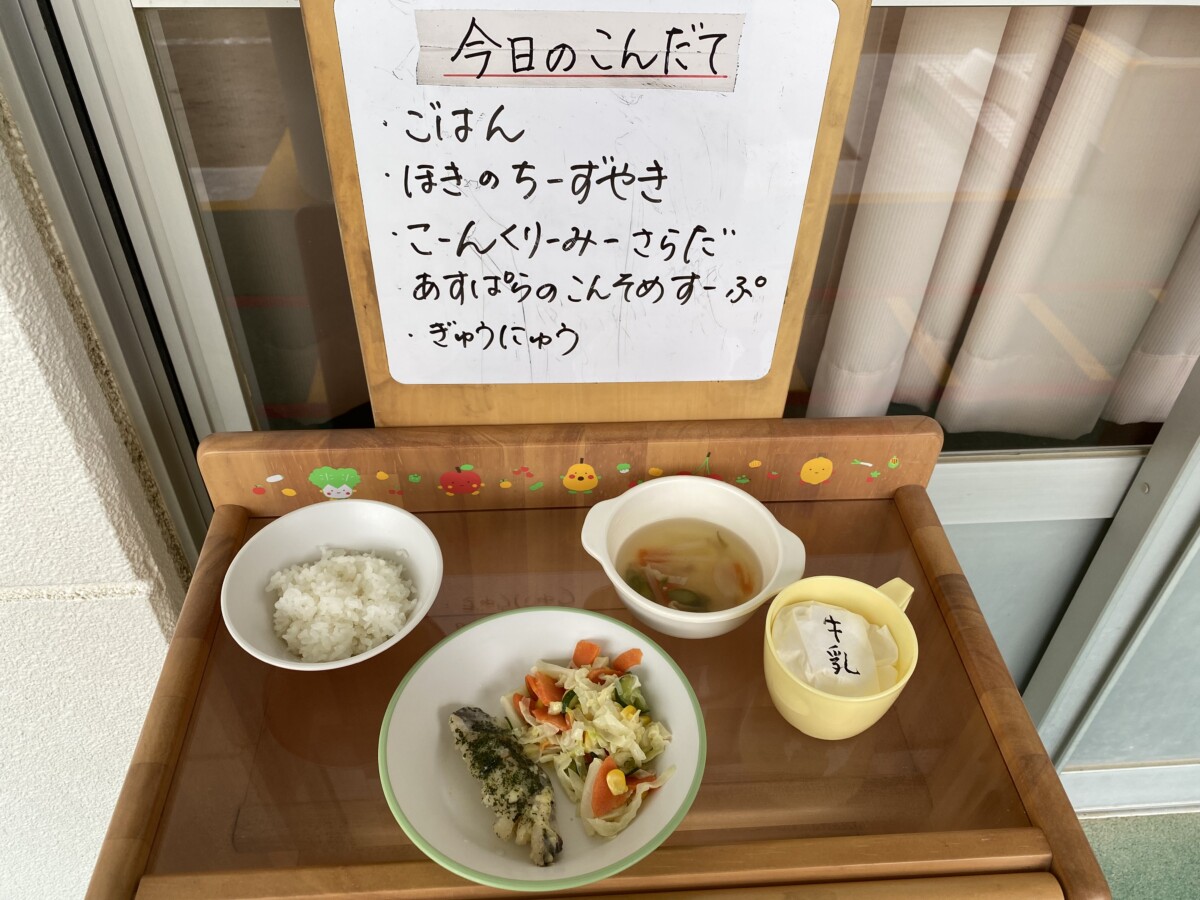 今日のこんだて
・ごはん
・ほきのちーずやき
・こーんくりーみーさらだ
あすぱらのこんそめすーぷ
・ぎゅうにゅう
牛乳